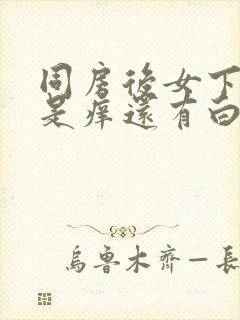 同房後女下
是痒還有白
烏魯木齊一長